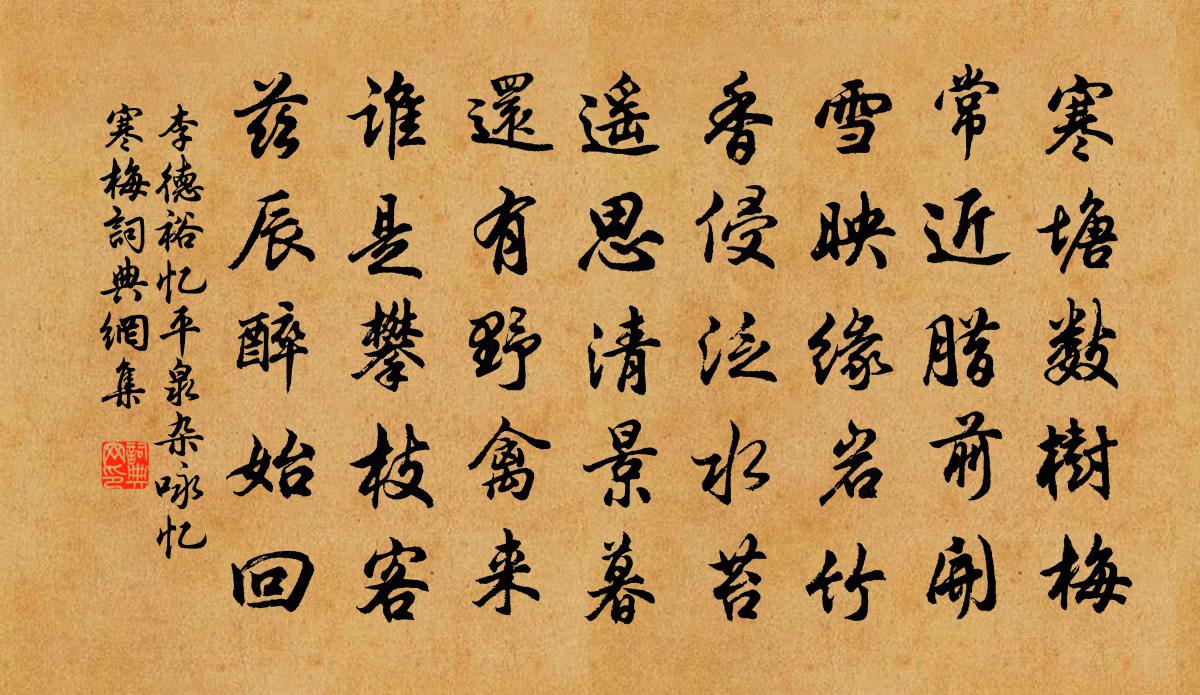 寒塘數樹梅
常近腊前開
雪映缘岩竹
香侵泛水苔
遥思清景暮
還有野禽来
谁是攀枝客
兹辰醉始回
李德裕忆平泉杂咏忆
寒梅詞典網集
詞典
网印